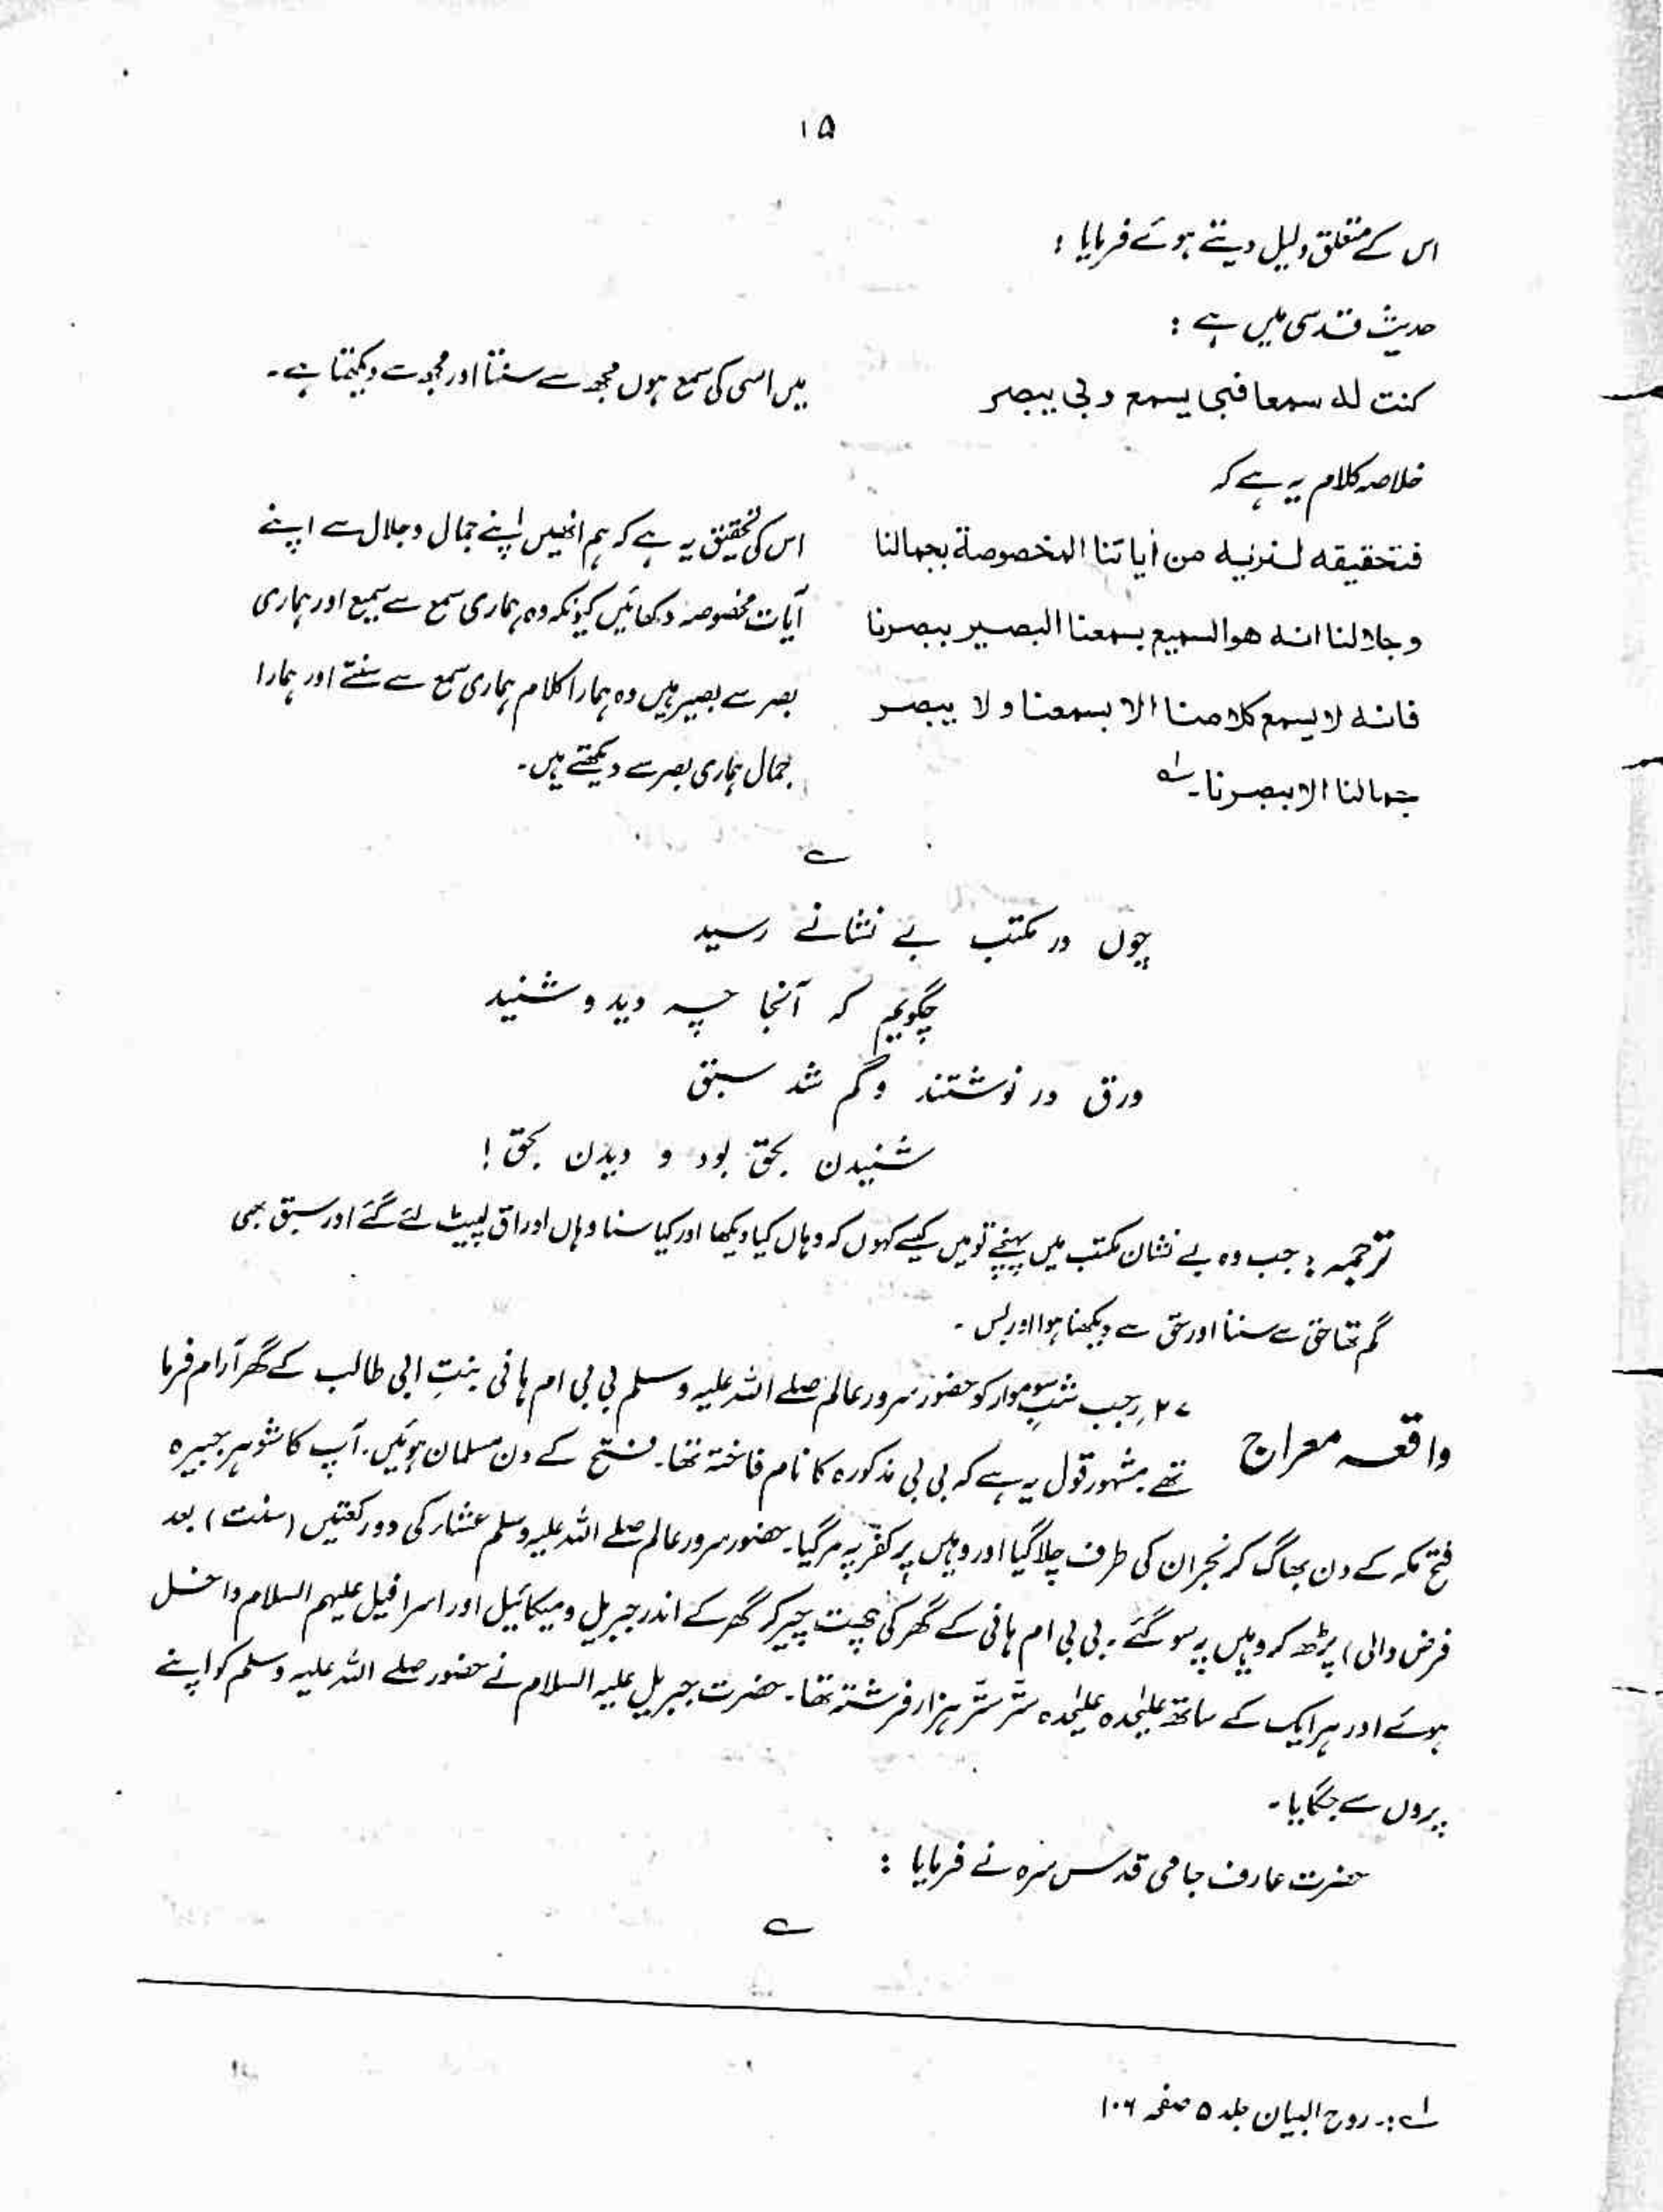 ۱۵
اس کے متعلق دلیل دیتے ہوئے فرمایا :
حدیث قدسی میں ہے :
کنت لہ سمعا فبی یسمع و بی یبصر
میں اسی کی سمع ہوں مجھ سے سنتا اور مجھ سے دیکھتا ہے۔
خلاصہ کلام یہ ہے کہ
فتحقیقہ لنریہ من اٰیاتنا المخصوصۃ بجمالنا
و جلالنا انہ ھوالسمیع بسمعنا البصیر ببصرنا
فانہ لا یسمع کلامنا الا بسمعنا و لا یبصر
جمالنا الا ببصرنا۔ لہ
اس کی تحقیق یہ ہے کہ ہم انھیں اپنے جمال و جلال سے اپنے
آیات مخصوصہ دکھائیں کیونکہ وہ ہماری سمع سے سمیع اور ہماری
بصر سے بصیر ہیں وہ ہمارا کلام ہماری سمع سے سنتے اور ہمارا
جمال ہماری بصر سے دیکھتے ہیں۔
؎
چوں در مکتب بے نشانے رسید
چگویم کہ آنجا چہ دید و شنید
ورق در نوشتند و گم شد سبق
شنیدن بحق بود و دیدن بحق !
ترجمہ : جب وہ بے نشان مکتب میں پہنچے تو میں کیسے کہوں کہ وہاں کیا دیکھا اور کیا سنا وہاں اوراق لپیٹ لئے گئے اور سبق بھی
گم تھا حق سے سننا اور حق سے دیکھنا ہوا اور بس ۔
واقعہ معراج
۲۷ رجب شبِ سوموار کو حضور سرور عالم صلے اللہ علیہ وسلم بی بی ام ہانی بنتِ ابی طالب کے گھر آرام فرما
تھے مشہور قول یہ ہے کہ بی بی مذکورہ کا نام فاختہ تھا۔ فتح کے دن مسلمان ہوئیں۔ آپ کا شوہر جبیرہ
فتح مکہ کے دن بھاگ کر نجران کی طرف چلا گیا اور وہیں پر کفر پہ مر گیا۔ حضور سرور عالم صلے اللہ علیہ وسلم عشاء کی دو رکعتیں (سنت) بعد
فرض والی) پڑھ کر وہیں پر سو گئے ۔ بی بی ام ہانی کے گھر کی چھت چیر کر گھر کے اندر جبریل و میکائیل اور اسرافیل علیہم السلام داخل
ہوئے اور ہر ایک کے ساتھ علیٰحدہ علیٰحدہ ستّر ستّر ہزار فرشتہ تھا۔ حضرت جبریل علیہ السلام نے حضور صلے اللہ علیہ وسلم کو اپنے
پروں سے جگایا ۔
حضرت عارف جامی قدس سرہ نے فرمایا :
؎
لہ :۔ روح البیان جلد ۵ صفحہ ۱۰۶